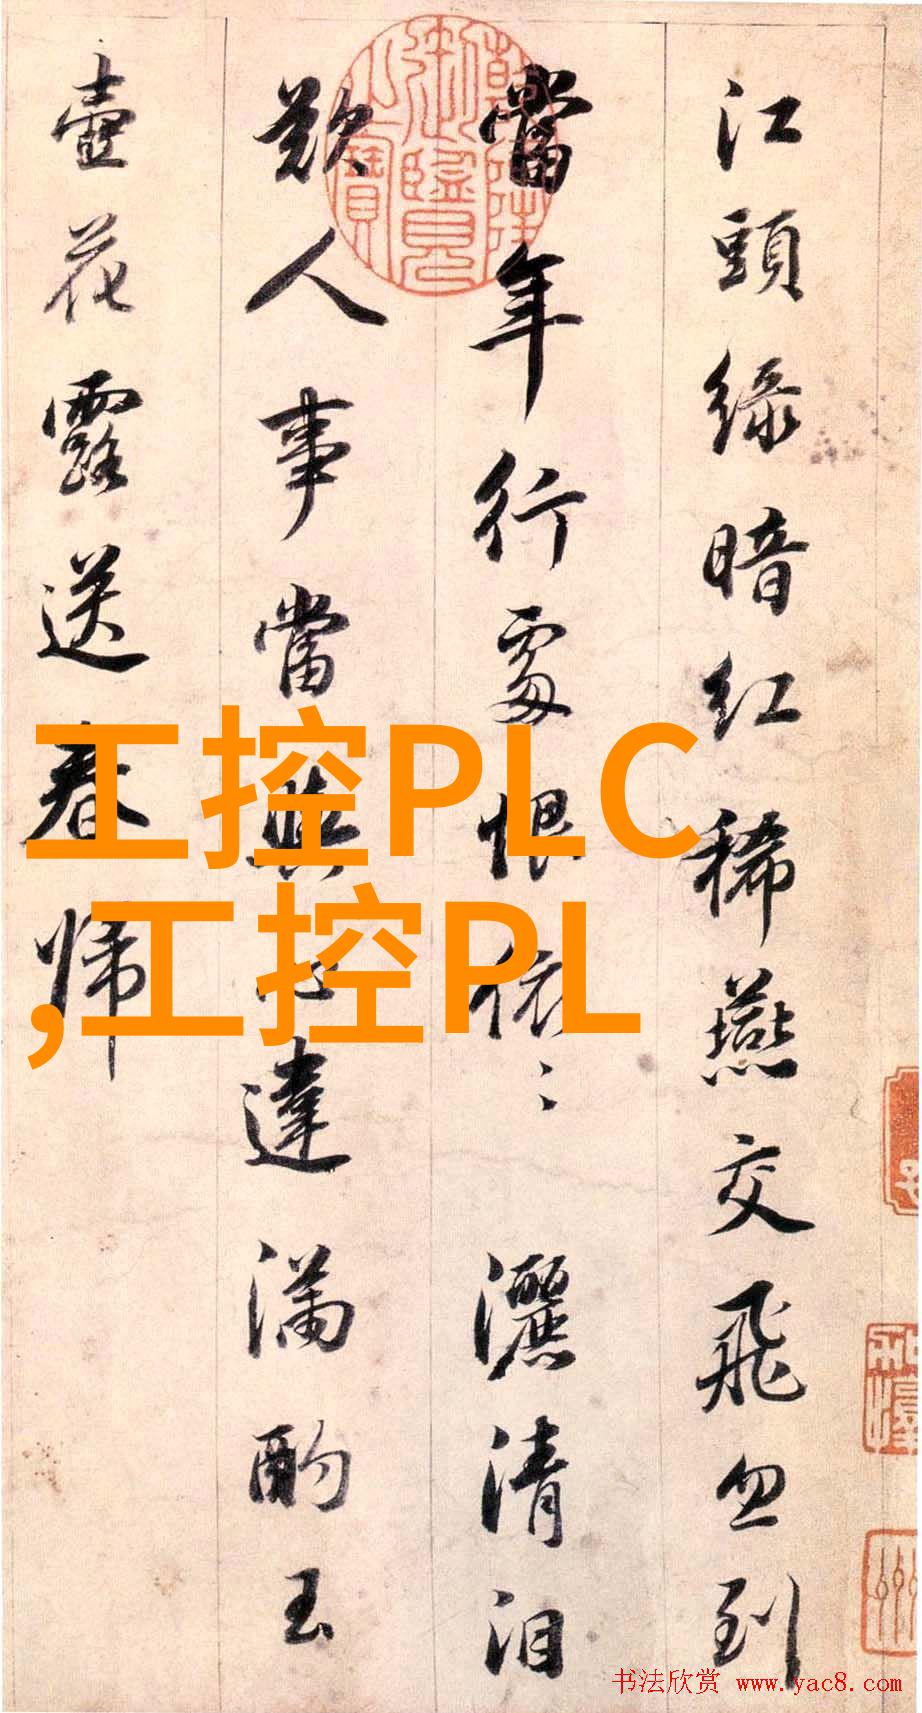 江頭綠暗紅稀燕交飛忽到
當年行處恨依〻灑清泪
歎人事當與心違滿酌玉
壺花露送春歸
乾隆御覽之寶
工控PLC
,工控PL
书法欣赏 www.yac8.com